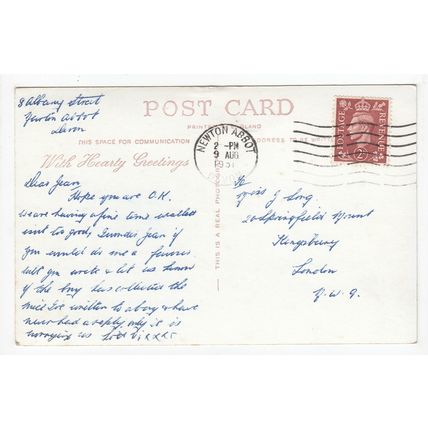 8 Albany Street
Newton Abbot
Devon
POST CARD
PRINTED IN ENGLAND
THIS SPACE FOR COMMUNICATION
ADDRESS TO BE
With Hearty Greetings
THIS IS A REAL PHOTOGRAPH
NEWTON ABBOT
2 - PM
9 AUG
1951
POSTAGE
REVENUE
Dear Jean,
Hope you are O.K.
we are having a fine time weather
isnt to good, I wonder Jean if
you would do me a favour
will you write & let us know
if the boy has collected the
milk Ive written to a boy & have
never had a reply only it is
worrying us love Vi xxxx
To
Miss J Long
20 Springfield Mount
Kingsbury
London
N.W.9.